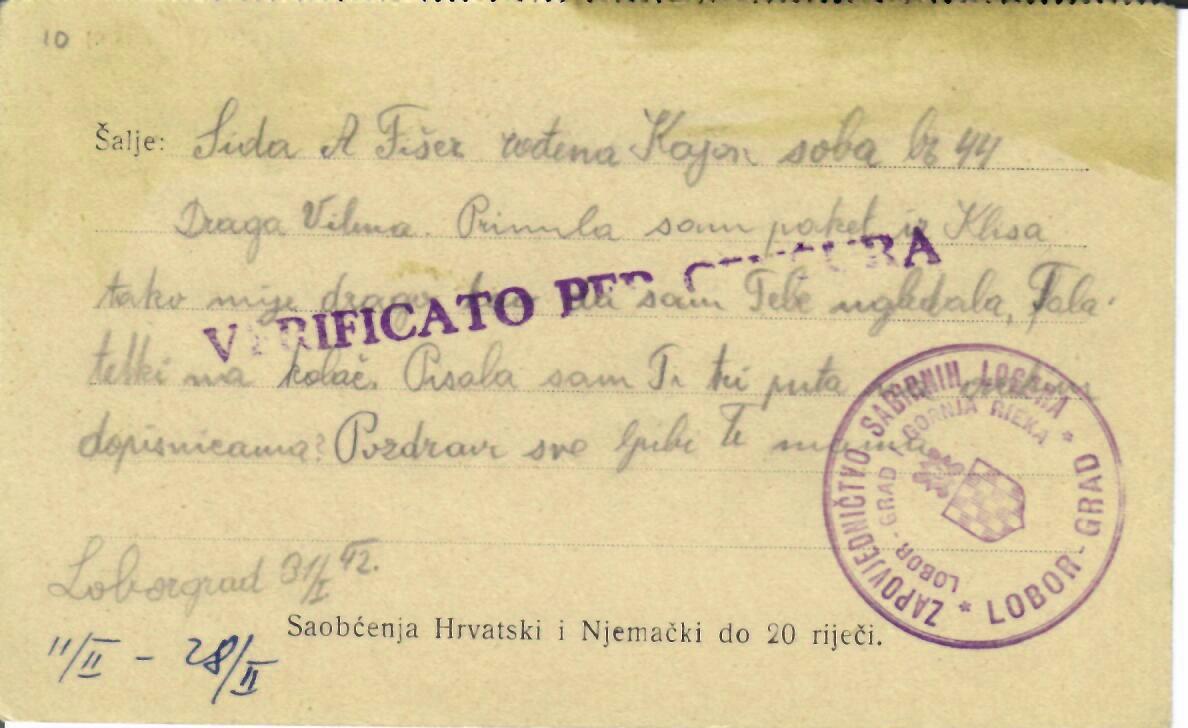 10
Šalje: Sida A Fišer rođena Kajon soba br 44
Draga Vilma. Primila sam paket iz Klisa
tako mi je drago da sam Tebe ugledala, Fala
tetki na kolač. Pisala sam Ti tri puta
dopisnicama? Pozdravi sve ljubi Te mama
VERIFICATO PER CENSURA
ZAPOVJEDNIČTVO SABIRNIH LOGORA * LOBOR-GRAD *
LOBOR-GRAD GORNJA RIEKA
Loborgrad 31/I 42.
Saobćenja Hrvatski i Njemački do 20 riječi.
11/II - 28/II